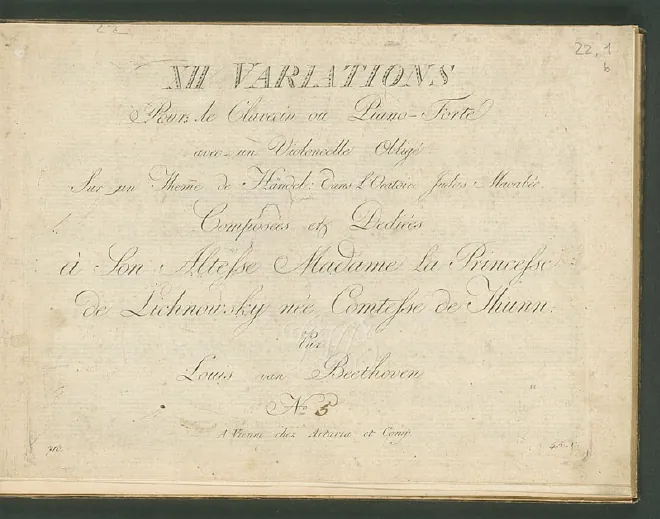 22,1
b
XII VARIATIONS
Pour le Clavecin ou Piano-Forte
avec un Violoncelle Obligé
Sur un Thême de Händel: dans l'Oratoire Judas Macabée.
Composées et Dediées
à Son Altesse Madame la Princesse
de Lichnowsky née Comtesse de Thunn.
Par
Louis van Beethoven
No 5
A Vienne chez Artaria et Comp.